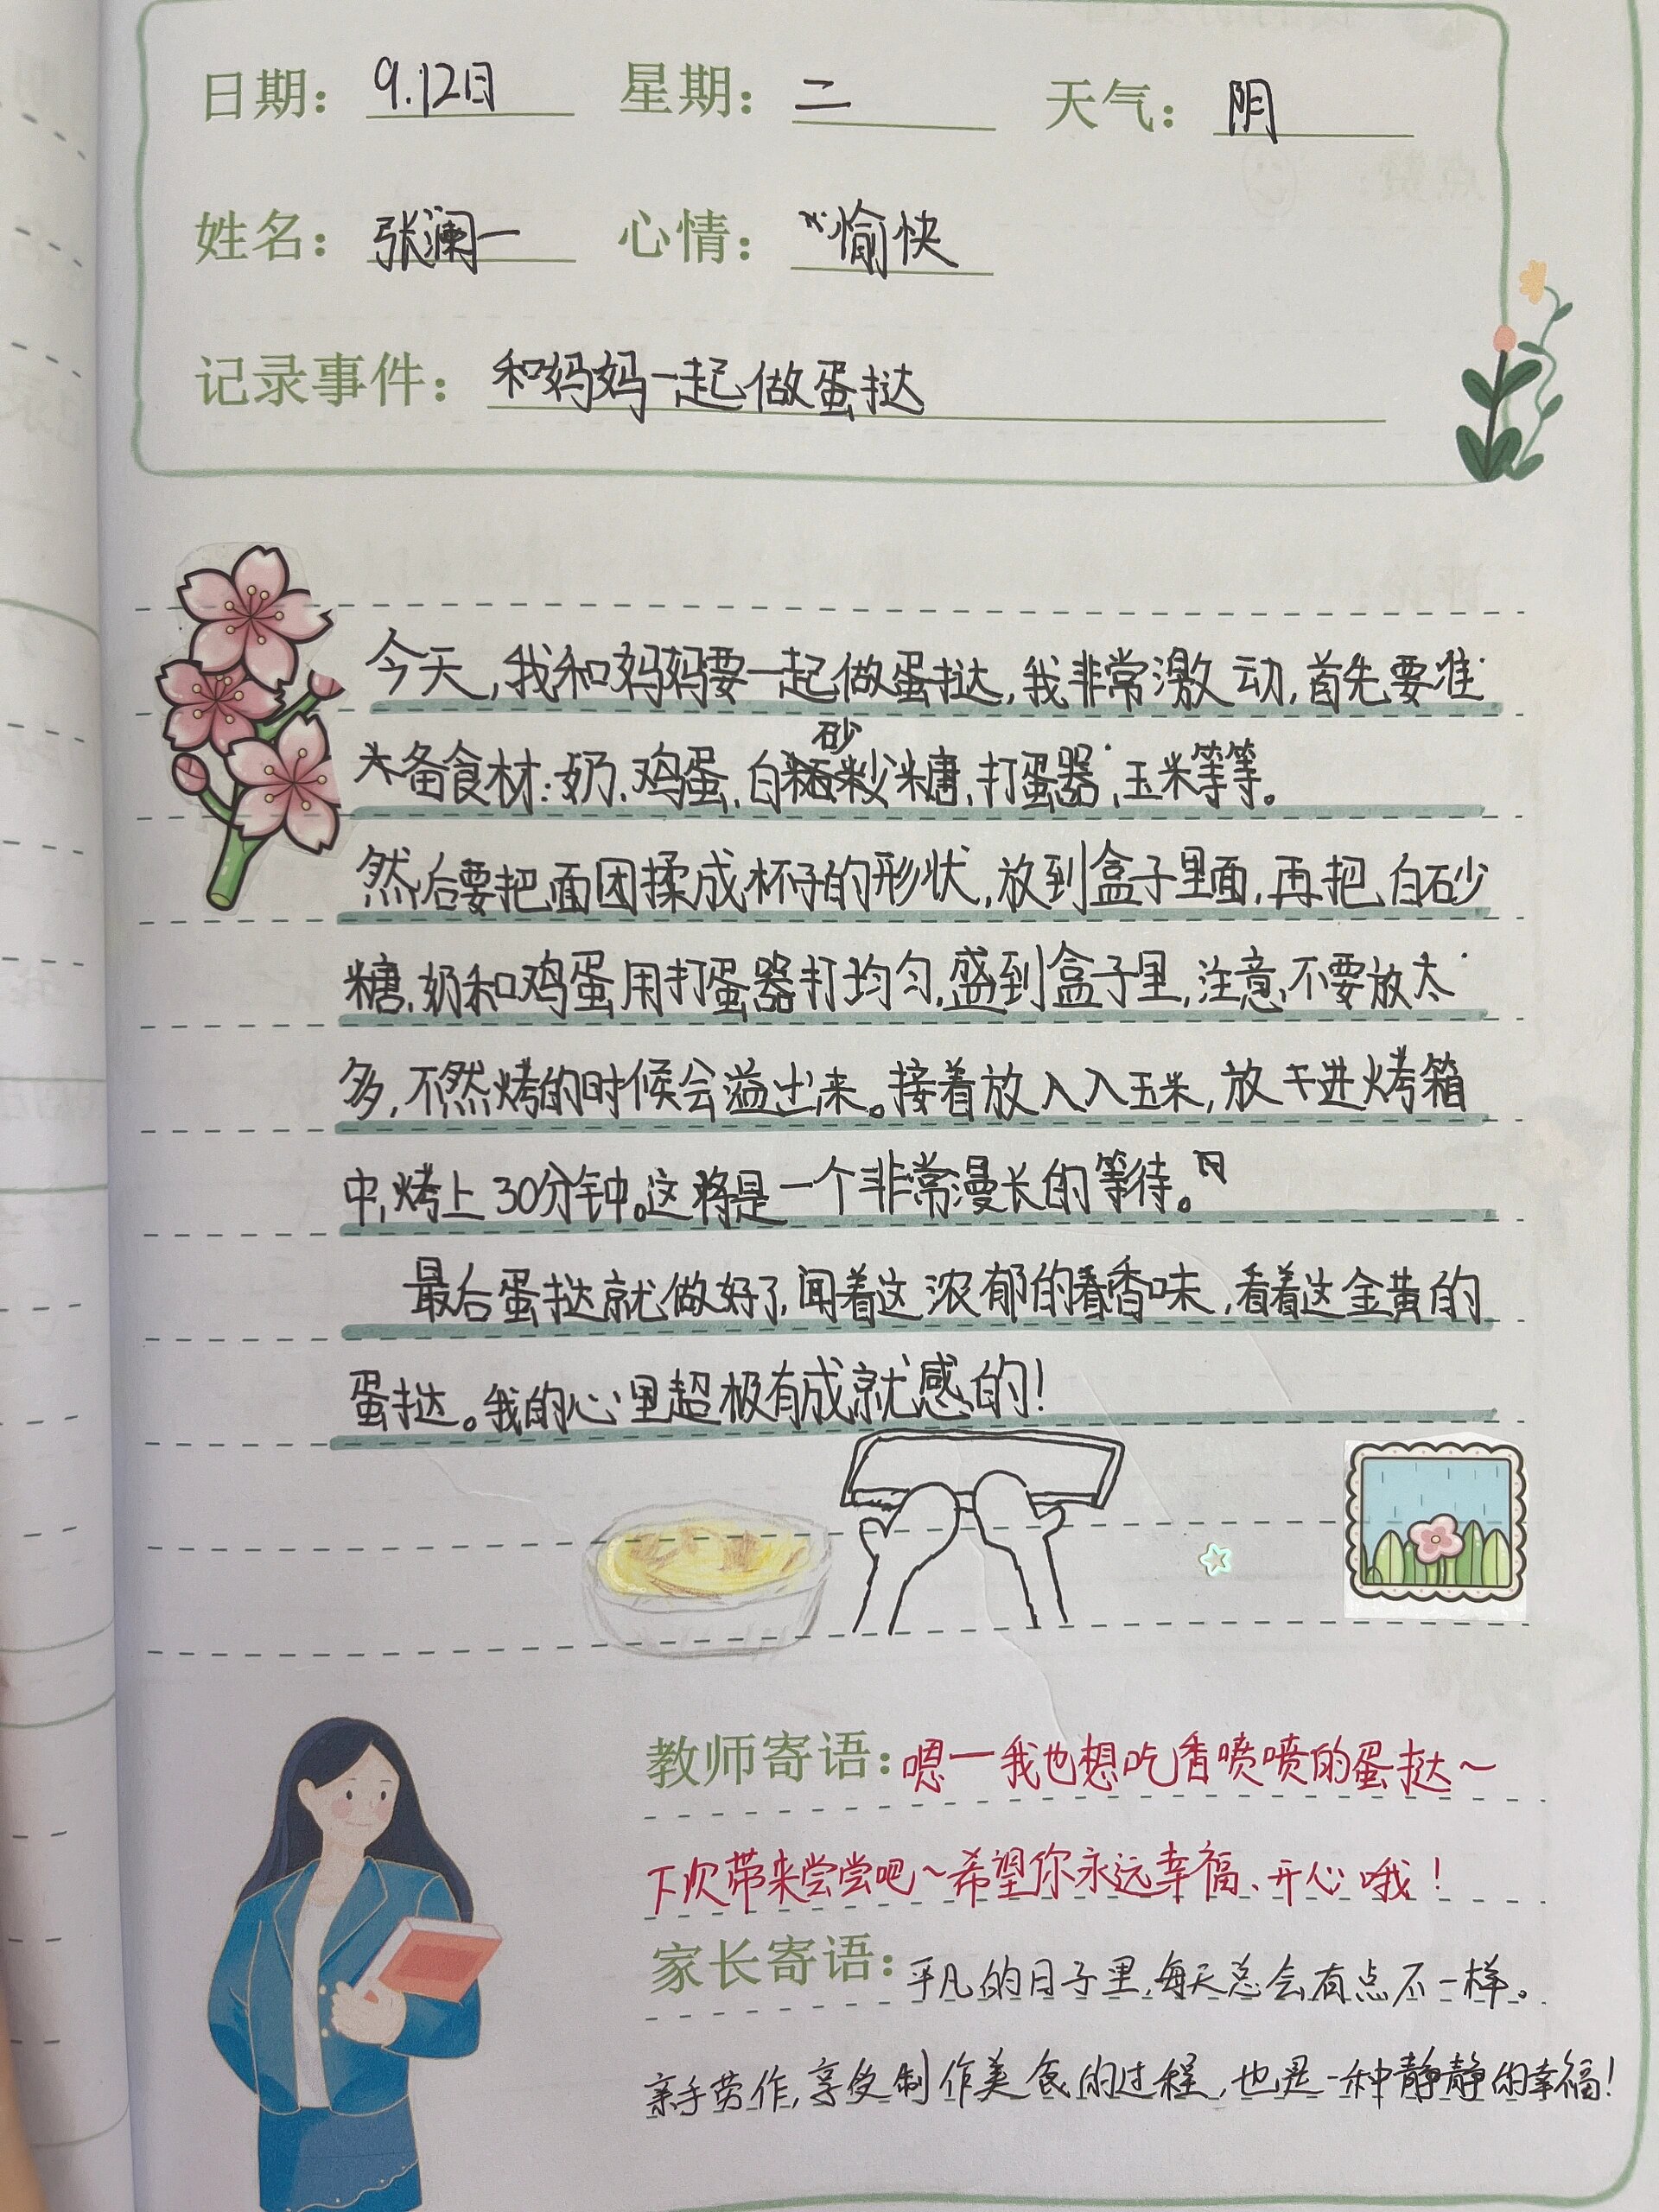 日期：9.12日 星期：二 天气：阴
姓名：张澜一 心情：愉快
记录事件：和妈妈一起做蛋挞
今天，我和妈妈要一起做蛋挞，我非常激动，首先要准
备食材：奶、鸡蛋、白砂糖、打蛋器、玉米等等。
然后要把面团揉成杯子的形状，放到盒子里面，再把白砂
糖、奶和鸡蛋用打蛋器打均匀，盛到盒子里，注意，不要放太
多，不然烤的时候会溢出来。接着放入入玉米，放进烤箱
中，烤上30分钟。这将是一个非常漫长的等待。
最后蛋挞就做好了，闻着这浓郁的香味，看着这金黄的
蛋挞。我的心里超极有成就感的！
教师寄语：嗯一我也想吃香喷喷的蛋挞～
下次带来尝尝吧～希望你永远幸福、开心哦！
家长寄语：平凡的日子里，每天总会有点不一样。
亲手劳作，享受制作美食的过程，也是一种静静的幸福！